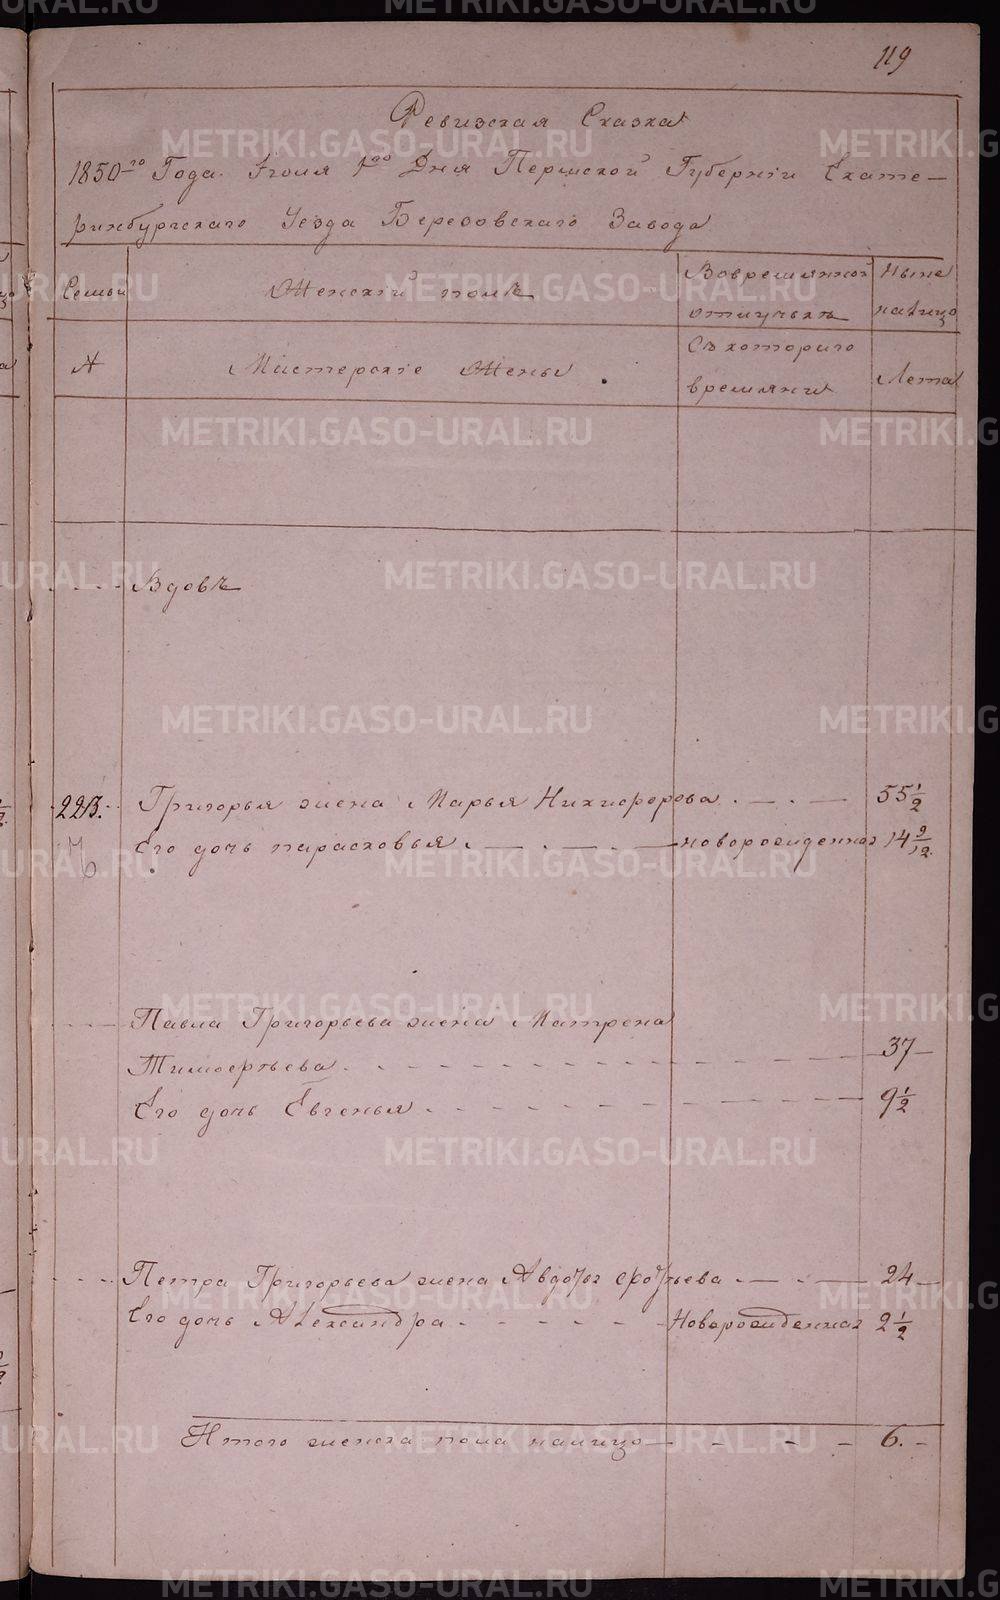 119
Ревизская Сказка
1850-го Года. Iюля 1го Дня Пермской Губернiи Екате-
ринбургскаго Уезда Березовскаго Завода
Семьи
Женскiй полъ
Вовремянной
отлучькѣ
Ныне
налицо
№
Мастерскiе Жены
Съ котораго
времяни
Лета
Вдовъ
223.
Григорья жена Марья Никифорова
55 1/2
Его дочь парасковья
новорожденная
14 9/12
Павла Григорьева жена Матрена
Тимофѣева
37
Его дочь Евгенья
9 1/2
Петра Григорьева жена Авдотья
24
Его дочь Александра
Новорожденная
2 1/2
Итого женска пола налицо
6.
METRIKI.GASO-URAL.RU